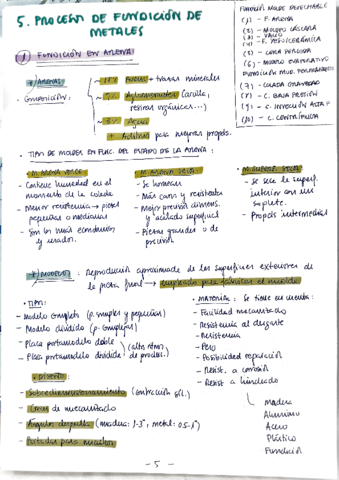 5. PROCESO DE FUNDICIÓN DE METALES
FUNDICIÓN MOLDE DESECHABLE
(1) - F. ARENA
(2) - MOLDEO CÁSCARA
(3) - VACÍO
(5) - CERA PERDIDA
(6) - MODELO EVAPORATIVO
FUNDICIÓN MOL. PERMANENTES
(7) - COLADA GRAVEDAD
(8) - C. BAJA PRESIÓN
(9) - C. INYECCIÓN ALTA P
(10) - C. CENTRÍFUGA
1 FUNDICIÓN EN ARENA
* ARENAS
Composición:
+ trazas minerales
Aglomerantes (arcilla,
resinas orgánicas...)
Agua
+ Aditivos para mejorar propied.
• TIPO DE MOLDES EN FUNC. DEL ESTADO DE LA ARENA:
M. ARENA VERDE
- Contiene humedad en el
momento de la colada
- Menor resistencia → piezas
pequeñas o medianas
- Son los más económicos
y usados.
M. ARENA SECA:
- Se hornean
- Más caros y resistentes
- Mejor precisión dimens.
y acabado superficial
- Piezas grandes o de
precisión
M. SUPERF. SECA
- Se seca la superf.
interior con un
soplete.
- Propied. intermedias
* MODELO: Reproducción aproximada de las superficies exteriores de
la pieza final → empleado para fabricar el molde
• TIPOS:
- Modelo completo (p. simples y pequeñas)
- Modelo dividido (p. complejas)
- Placa portamodelo doble
- Placa portamodelo dividida
(altos ritmos
de produc.)
• MATERIAL: Se tiene en cuenta:
- Facilidad mecanizado
- Resistencia al desgaste
- Resistencia
- Peso
- Posibilidad reparación
- Resist. a corrosión
- Resist. a hinchado
• DISEÑO
- Sobredimensionamiento (contracción sól.)
- Creces de mecanizado
- Ángulos despulla (madera: 1-3°, metal: 0.5-1°)
- Portadas para machos
Madera
Aluminio
Acero
Plástico
Fundición
- 5 -